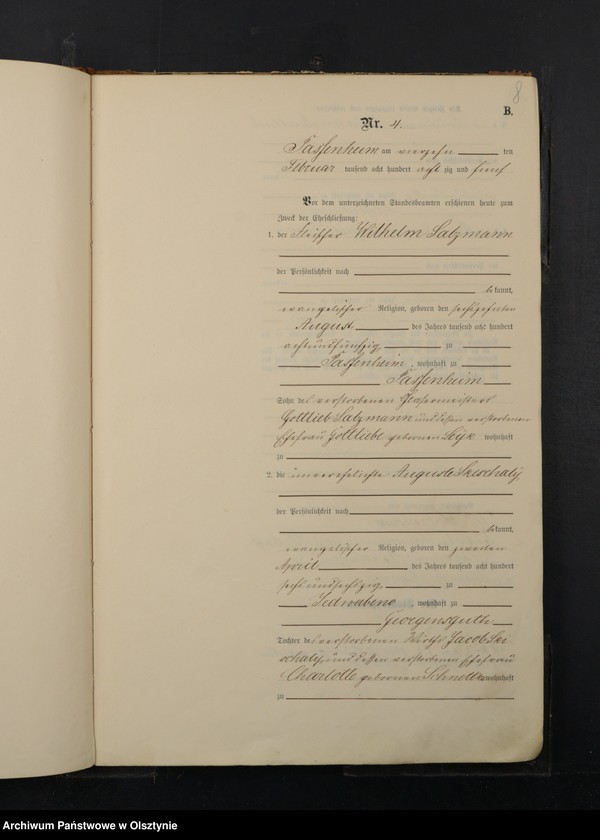 8
B.
Nr. 4.
Passenheim am vierzehn ten
Februar tausend acht hundert acht zig und fünf
Vor dem unterzeichneten Standesbeamten erschienen heute zum
Zweck der Eheschließung:
1. der Fleischer Wilhelm Salzmann
der Persönlichkeit nach
bekannt,
evangelischer Religion, geboren den sechszehnten
August des Jahres tausend acht hundert
achtundfünfzig, zu
Passenheim, wohnhaft zu
Passenheim
Sohn des verstorbenen Glasermeisters
Gottlieb Salzmann und dessen verstorbenen
Ehefrau Gottliebe geborenen wohnhaft
zu
2. die unverehelichte Auguste
der Persönlichkeit nach
bekannt,
evangelischer Religion, geboren den zweiten
April des Jahres tausend acht hundert
sechsundsechszig, zu
Jedwabno, wohnhaft zu
Georgensguth
Tochter des verstorbenen Wirths Jacob
und dessen verstorbenen Ehefrau
Charlotte geborenen wohnhaft
zu
Archiwum Państwowe w Olsztynie